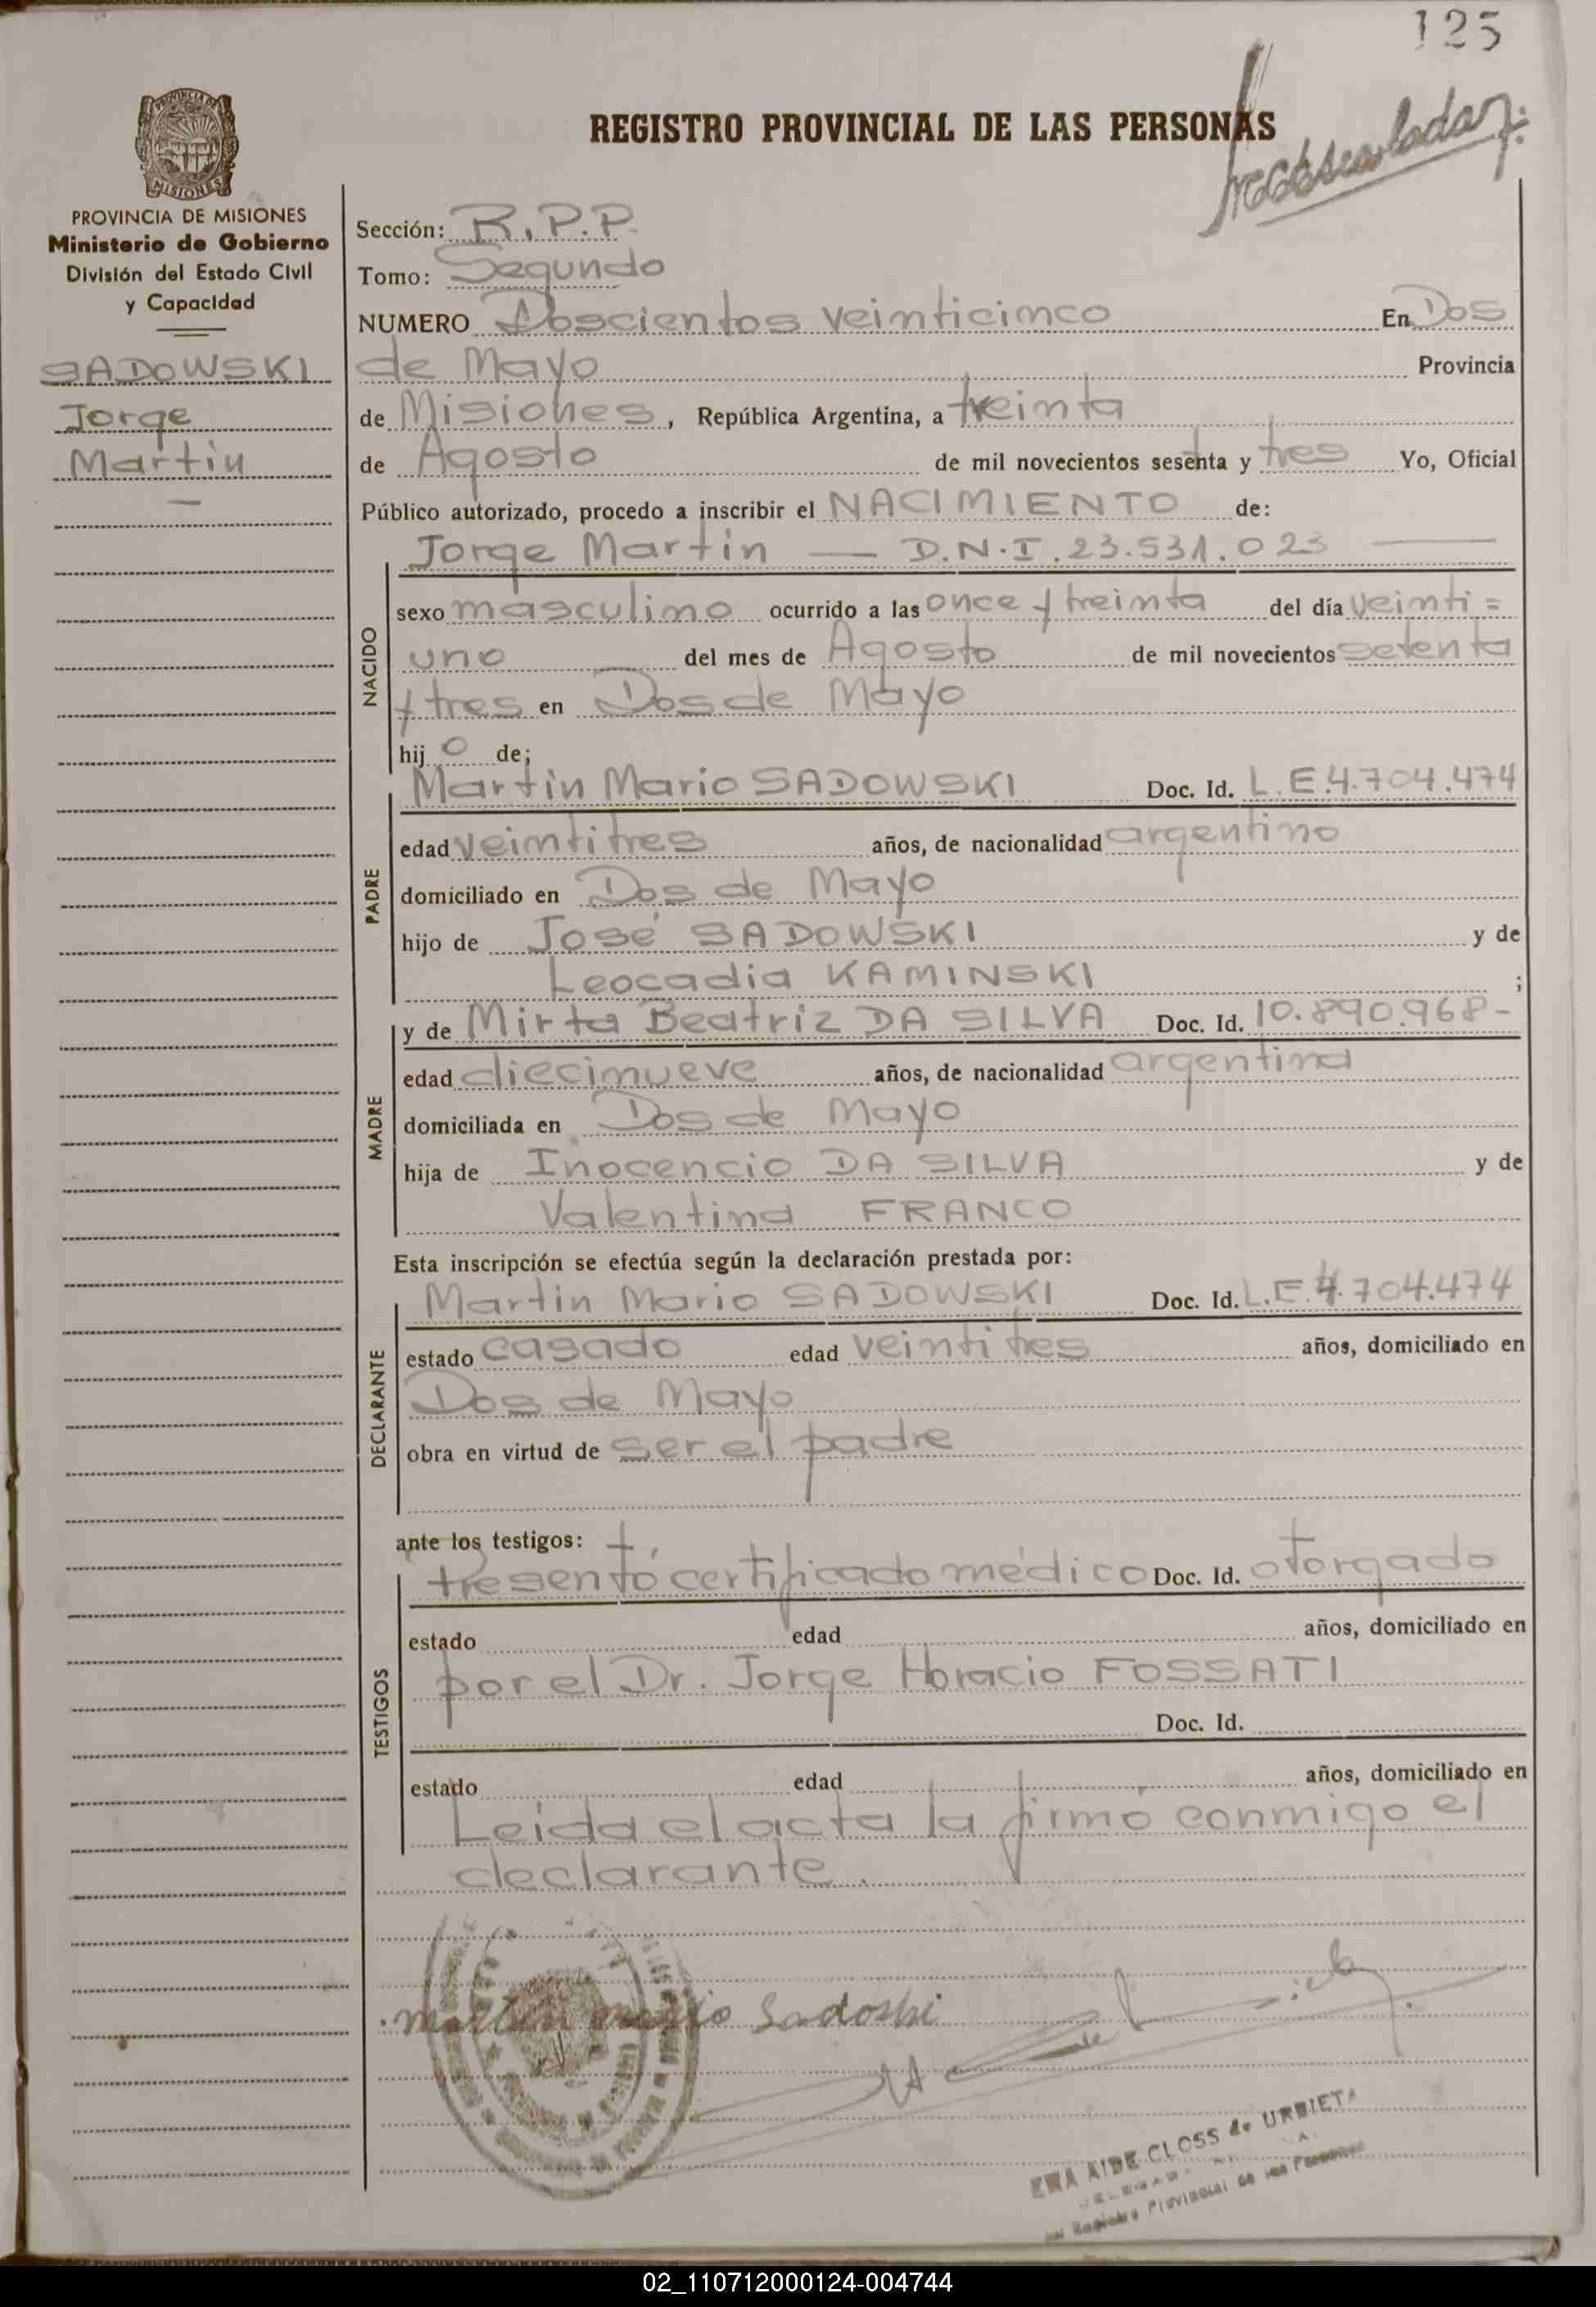 125
REGISTRO PROVINCIAL DE LAS PERSONAS
PROVINCIA DE MISIONES
MISIONES
PROVINCIA DE MISIONES
Ministerio de Gobierno
División del Estado Civil
y Capacidad
SADOWSKI
Jorge
Martin
Sección: R.P.P.
Tomo: Segundo
NUMERO Doscientos veinticinco En Dos
de Mayo Provincia
de Misiones, República Argentina, a treinta
de Agosto de mil novecientos sesenta y tres Yo, Oficial
Público autorizado, procedo a inscribir el NACIMIENTO de:
Jorge Martin — D.N.I. 23.531.023 —
NACIDO
sexo masculino ocurrido a las once y treinta del día veinti=
uno del mes de Agosto de mil novecientos setenta
y tres en Dos de Mayo
hijo de;
PADRE
Martin Mario SADOWSKI Doc. Id. L.E.4.704.474
edad veintitres años, de nacionalidad argentino
domiciliado en Dos de Mayo
hijo de José SADOWSKI y de
Leocadia KAMINSKI ;
MADRE
y de Mirta Beatriz DA SILVA Doc. Id. 10.890.968-
edad diecinueve años, de nacionalidad argentina
domiciliada en Dos de Mayo
hija de Inocencio DA SILVA y de
Valentina FRANCO
Esta inscripción se efectúa según la declaración prestada por:
DECLARANTE
Martin Mario SADOWSKI Doc. Id. L.E.4.704.474
estado casado edad veintitres años, domiciliado en
Dos de Mayo
obra en virtud de ser el padre
ante los testigos:
TESTIGOS
Presentó certificado médico Doc. Id. otorgado
estado edad años, domiciliado en
por el Dr. Jorge Horacio FOSSATI
Doc. Id.
estado edad años, domiciliado en
Leida el acta la firmó conmigo el
declarante.
martin mario Sadoski
AIDE CLOSS de URBIETA
Registro Provincial de las Personas
02_110712000124-004744